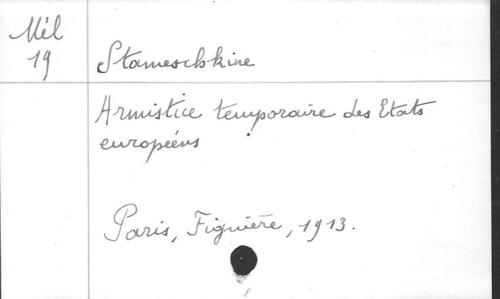 Mél
19
Stameschkine
Armistice temporaire des Etats
européens
Paris, Figuière, 1913.